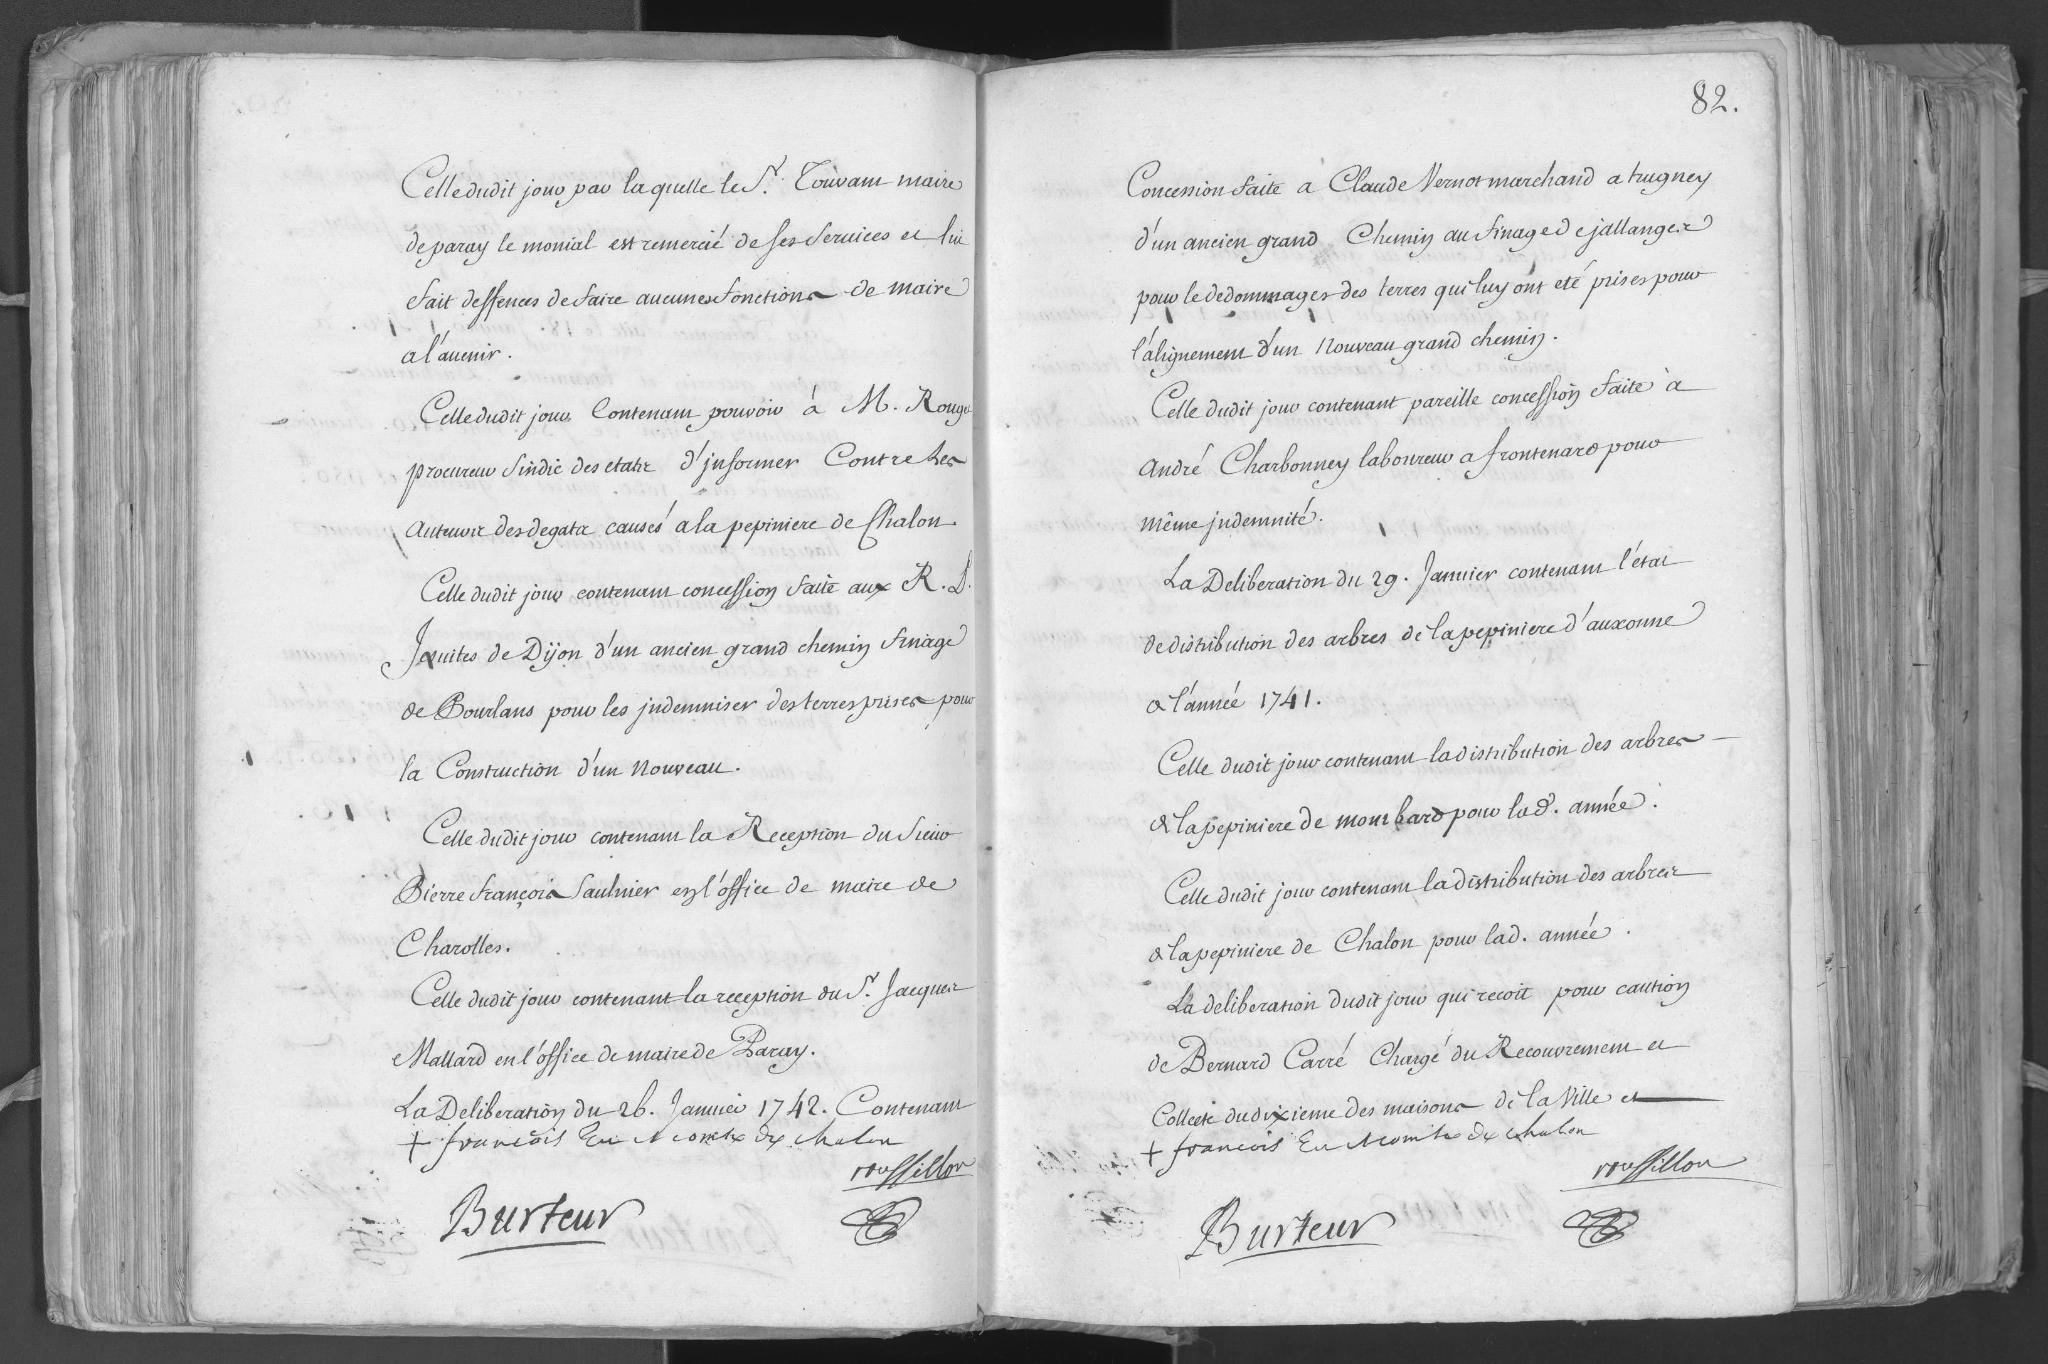 Celle dudit jour par laquelle le Sr. Touvant maire
de paray le monial est remercié de ses services et lui
fait deffences de faire aucunes fonctions de maire
a l'avenir.
Celle dudit jour Contenant pouvoir à M. Rouge
procureur sindic des etats d'jnformer Contre les
Auteurs des degats causés a la pepiniere de Chalon
Celle dudit jour contenant concession faite aux R. P.
Jesuites de Dijon d'un ancien grand chemin finage
de Bourlans pour les jndemniser des terres prises pour
la Construction d'un Nouveau.
Celle dudit jour contenant la Reception du Sieur
Pierre françois Saulnier en l'office de maire de
Charolles.
Celle dudit jour contenant la reception du Sr. Jacques
Mallard en l'office de maire de Paray.
La Deliberation du 26. Janvier 1742. Contenant
+ françois Eu. Comte de chalon
roussillon
Burteur
82.
Concession faite a Claude Vernot marchand a trugney
d'un ancien grand Chemin au finage de jallanges
pour le dedommager des terres qui luy ont eté prises pour
l'alignement d'un Nouveau grand chemin.
Celle dudit jour contenant pareille concession faite a
André Charbonney laboureur a frontenard pour
même jndemnité.
La Deliberation du 29. Janvier contenant l'état
de distribution des arbres de la pepiniere d'auxonne
de l'année 1741.
Celle dudit jour contenant la distribution des arbres
de la pepiniere de montbard pour lad. année.
Celle dudit jour contenant la distribution des arbres
de la pepiniere de Chalon pour lad. année.
La deliberation dudit jour qui recoit pour caution
de Bernard Carré Chargé du Recouvrement et
Collecte du dixieme des maisons de la Ville et
+ françois Eu. Comte de chalon
roussillon
Burteur